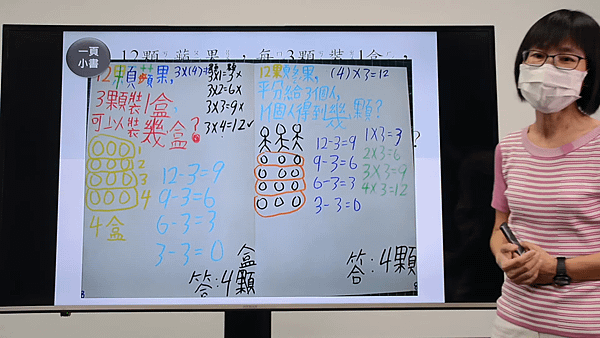 一頁
小書
12顆蘋果，每3顆裝1盒，
12顆蘋果，
3顆裝1盒，
可以裝幾盒？
3×(4)=12
3×1=3×
3×2=6×
3×3=9×
3×4=12✓
1
2
3
4
4盒
12-3=9
9-3=6
6-3=3
3-3=0
盒
答:4顆
12顆蘋果，
平分給3個人，
1個人得到幾顆？
(4)×3=12
12-3=9
9-3=6
6-3=3
3-3=0
1×3=3
2×3=6
3×3=9
4×3=12
答:4顆
？